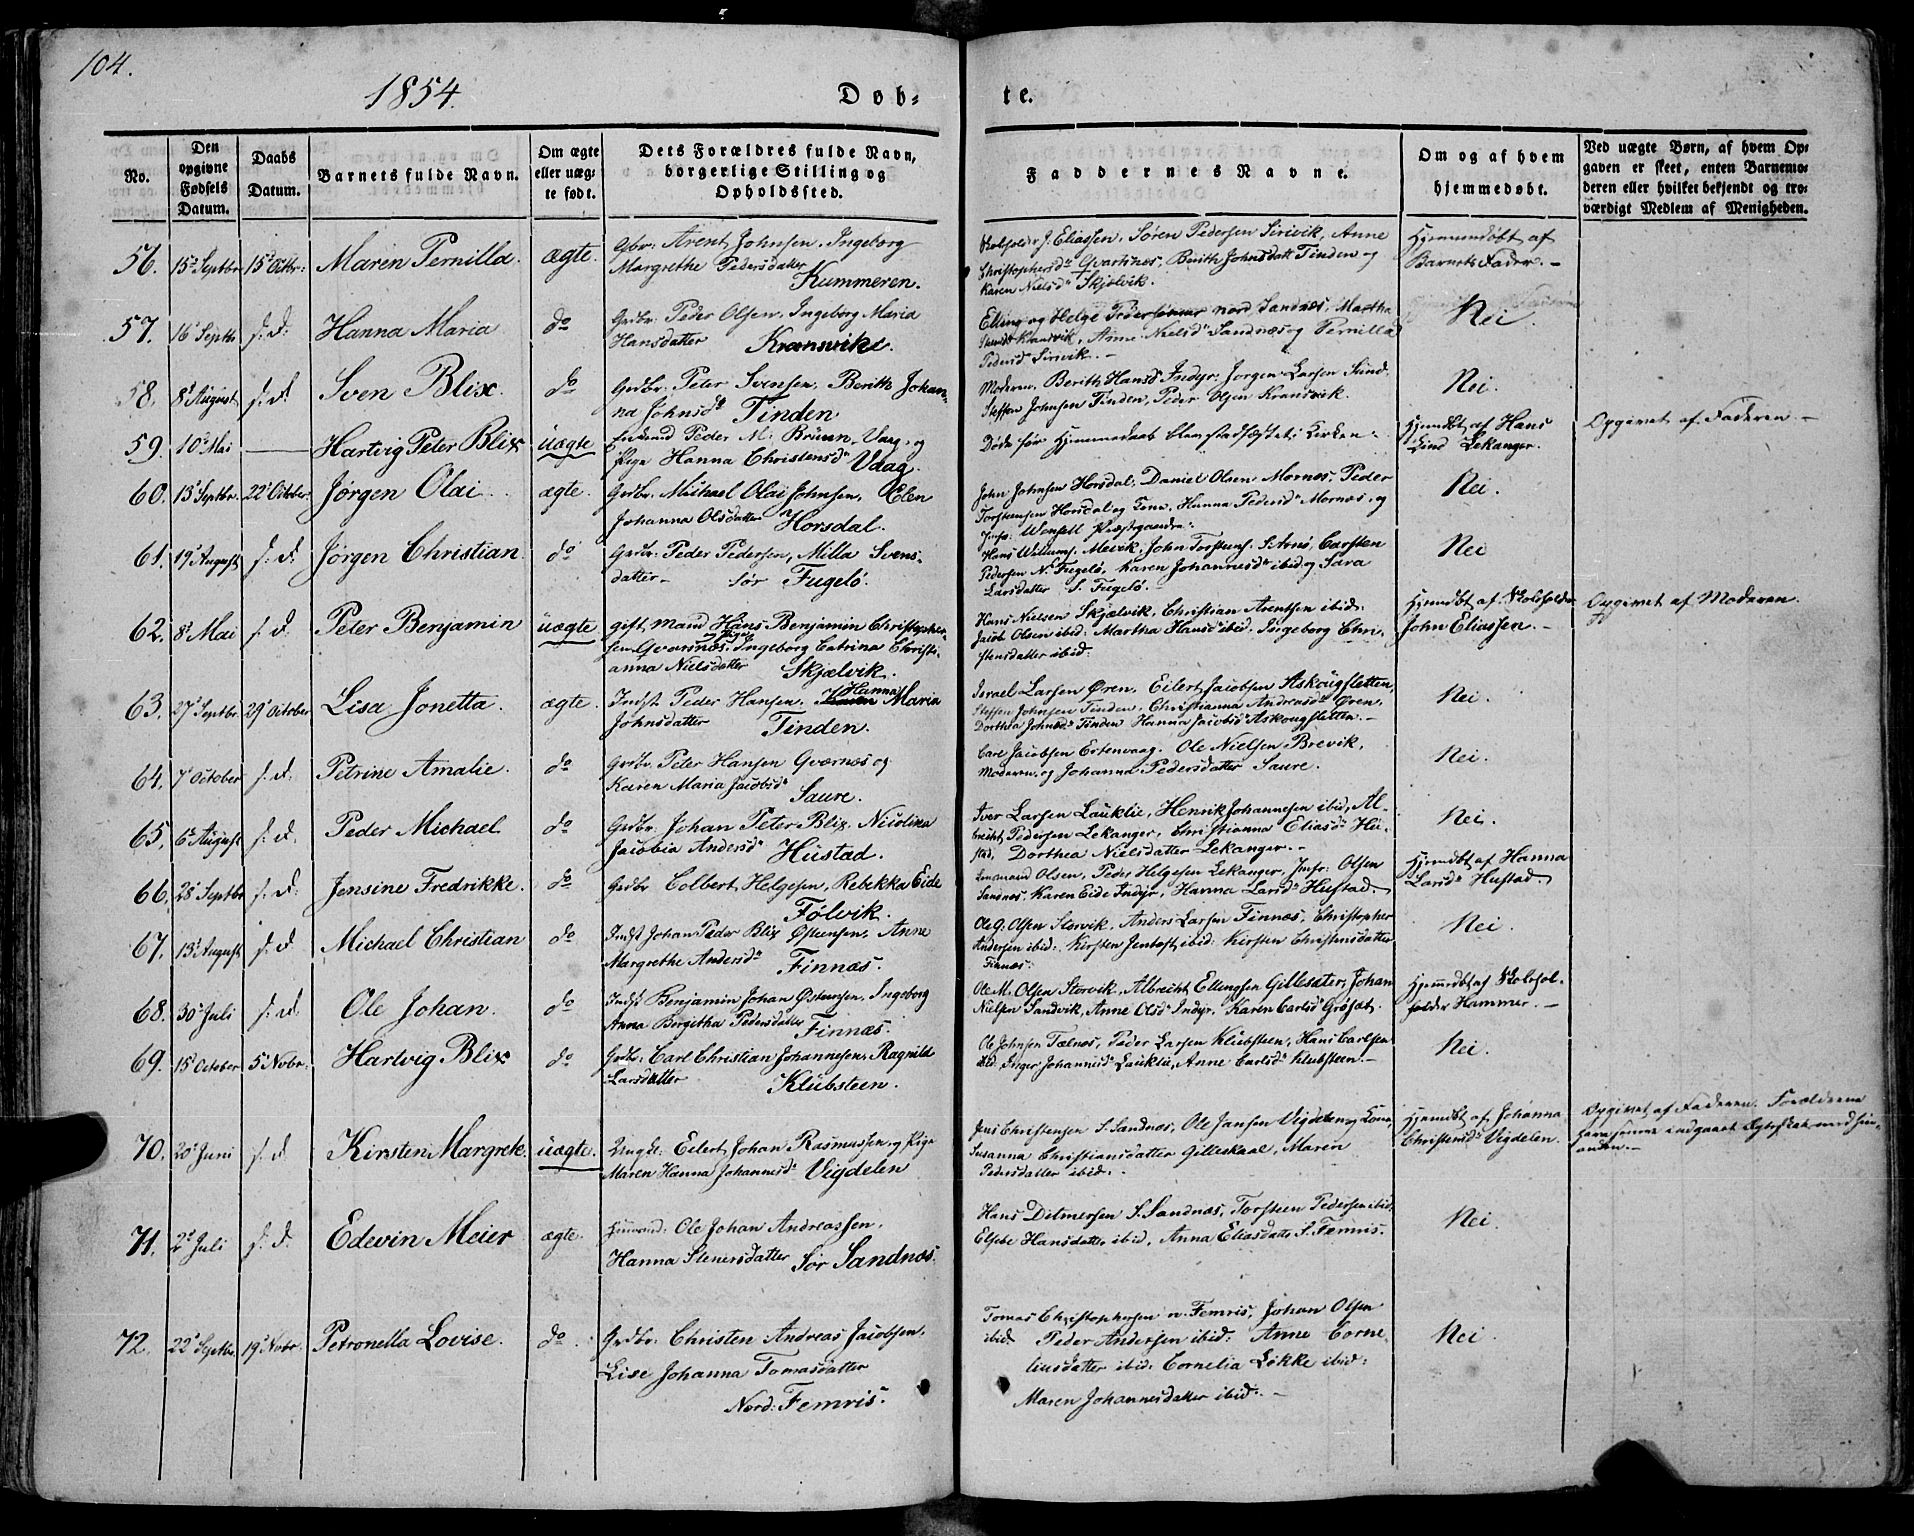 104.
1854.
Døb-
te.
No.
Den
opgivne
Fødsels
Datum.
Daabs
Datum.
Barnets fulde Navn.
Om ægte
eller uæg-
te født.
Dets Forældres fulde Navn,
borgerlige Stilling og
Opholdssted.
Faddernes Navne.
Om og af hvem
hjemmedøbt.
Ved uægte Børn, af hvem Op-
gaven er skeet, enten Barnemo-
deren eller hvilket bekjendt og tro-
værdigt Medlem af Menigheden.
56. 15 Septbr 15 Octbr: Maren Pernilla. ægte. Arent Johnsen, Ingeborg
Margrethe Pedersdatter
Kummeren.
J. Eliassen, Søren Pedersen Sirivik, Anne
Christophersd. Qvarsnæs, Berith Johnsdatt Tinden og
Karen Nielsd. Skjelvik.
Hjemmedøbt af
Barnets Fader. -
57. 16 Septbr s: d: Hanna Maria do Grdbr: Peder Olsen, Ingeborg Maria
Hansdatter Kransvik.
Elling og Helge Pedersønner nord Sandnæs, Martha
Sandvik, Anne Nielsd. Sandnæs og Pernilla
Pedersd. Sirivik. -
Nei.
58. 8 August s: d: Sven Blix. do Grdbr: Peter Svensen, Berith Johan-
na Johnsd. Tinden
Moderen, Berith Hansd. Indyr, Jørgen Larsen Sund,
Steffen Johnsen Tinden, Peder Olsen Kransvik.
Nei.
59. 10 Mai Hartvig Peter Blix uægte Peder M: Brüun, Vaag, og
Pige Hanna Christensd. Vaag.
Døde før Hjemmedaab blev stadfæstet i Kirken.
Hjemdbt af Hans
Lind Lekanger.
Opgivet af Faderen. -
60. 13 Septbr. 22 October. Jørgen Olai. ægte. Grdbr. Michael Olai Johnsen, Elen
Johanna Olsdatter Horsdal.
John Johnsen Horsdal, Daniel Olsen Mornæs, Peder
Torstensen Horsdal og Kone, Hanna Pedersd. Mornæs, og
Jnfr: Wensell Præstgaarden.
Nei.
61. 19 August s: d: Jørgen Christian do Grdbr: Peder Pedersen, Milla Svens-
datter - sør Fugelø.
Hans Mevik, John Torstens. S. Arnø, Carsten
Pedersen N. Fugelø, Karen Johannesd. ibid og Sara
Larsdatter S. Fugelø.
Nei
62. 8 Mai s: d. Peter Benjamin uægte gift, Mand Hans Benjamin Christopher-
sen Qvarsnæs, Pige Ingeborg Catrina Christi-
anna Nielsdatter Skjelvik.
Hans Nielsen Skjelvik, Christian Arentsen ibid:
Jacob Olsen ibid: Martha Hansd. ibid, Ingeborg Chri-
stensdatter ibid:
Hjemdbt af Skoleholder
John Eliassen. -
Opgivet af Moderen.
63. 27 Septbr. 29 October Lisa Jonetta. ægte. Indst Peder Hansen, Hanna Maria
Johnsdatter Tinden.
Israel Larsen Øren, Eilert Jacobsen Askougsletten,
Steffen Johnsen Tinden, Christianna Andreasd. Øren,
Dorthea Johnsd. Tinden Hanna Jacobsd. Askougsletten. -
Nei.
64. 7 October s: d. Petrine Amalie. do. Grdbr. Peter Hansen Qværnæs og
Karen Maria Jacobsd.
Saure.
Carl Jacobsen Ertenvaag. Ole Nielsen Brevik,
Moderen, og Johanna Pedersdatter Saure.
Nei.
65. 6 August s: d. Peder Michael do Grdbr: Johan Peter Blix, Nicolina
Jacobia Andersd. Hustad.
Iver Larsen Lauklie, Henrik Johannesen ibid, Al-
brecht Pedersen Lekanger, Christianna Eliasd. Hei-
stad, Dorthea Nielsdatter Lekanger. -
Nei.
66. 28 Septbr s: d. Jensine Fredrikke. do Grdbr Colbert Helgesen, Rebekka Eide
Følvik.
Olsen, Peder Helgesen Lekanger, Jnfr: Olsen
Sandnæs, Karen Eide Indyr, Hanna Larsd. Hustad.
Hjemdbt af Hanna
Larsd. Hustad.
67. 13 August s: d Michael Christian do Indst Johan Peder Blix Østensen, Anne
Margrethe Andersd. Finnæs.
Ole G: Olsen Storvik, Anders Larsen Finnæs, Christopher
Andersen ibid: Kirsten Jentoft ibid: Kirsten Christensdatter
Finnæs.
Nei.
68. 30 Juli s: d. Ole Johan. do Indst Benjamin Johan Østensen, Ingeborg
Anna Birgitha Pedersdatter Finnæs.
Ole M. Olsen Storvik, Albrecht Ellingsen Gillesæter, Johan
Nielsen Sandvik, Anne Olsd. Indyr, Karen Carlsd. Grøsæt.
Hjemdbt af Skolehol-
holder Hammer. -
69. 15 October 5 Novbr: Hartvig Blix do Grdbr: Carl Christian Johannesen, Ragnild
Larsdatter Klubsteen.
Ole Johnsen Tælnæs, Peder Larsen Klubsteen, Hans Carlsen
ibid: Inger Johannesd. Lauklie, Anne Carlsd. Klubsteen. -
Nei.
70. 20 Juni s: d. Kirsten Margrete. uægte. Ungk: Eilert Johan Rasmussen, og Pige
Maren Hanna Johannesd. Vigdelen
Jens Christensen S. Sandnæs, Ole Jansen Vigdelen og Kone,
Susanna Christiansdatter Gilleskaal, Maren
Pedersdatter ibid: -
Hjemdbt af Johanna
Christensd. Vigdelen.
Opgivet af Faderen. Forældrene
have senere indgaaet Ægteskab med hin-
anden. -
71. 2 Juli s: d. Edevin Meier ægte. Ole Johan Andreassen,
Hanna Stenersdatter Sør Sandnæs.
Hans Ditmersen S. Sandnæs, Torsteen Pedersen ibid.
Elsebe Hansdatter ibid, Anna Eliasdatt. S. Femris.
Nei.
72. 22 Septbr. 19 Novbr. Petronella Lovise. do. Grdbr: Christen Andreas Jacobsen,
Lise Johanna Tomasdatter
Nord: Femris.
Tomas Christophersen n. Femris, Johan Olsen
ibid Peder Andersen ibid: Anne Corne-
liusdatter ibid: Cornelia Løkke ibid:
Maren Johannesdatter ibid: -
Nei.